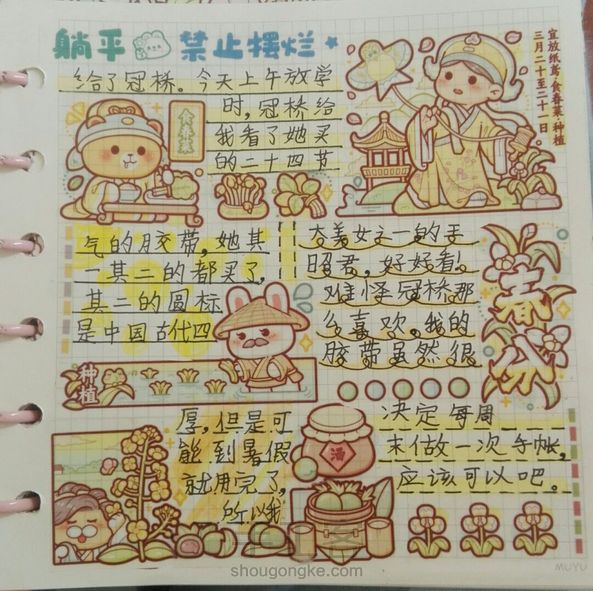 躺平 禁止摆烂
给了冠桥。今天上午放学
时，冠桥给
我看了她买
的二十四节
食春菜
宜放纸鸢·食春菜·种植
三月二十至二十一日。
气的胶带，她其
一其二的都买了，
其二的图标
是中国古代四
大美女之一的王
昭君，好好看！
难怪冠桥那
么喜欢。我的
胶带虽然很
春分
种植
厚，但是可
能到暑假
就用完了，
所以我
酒
决定每周
末做一次手帐，
应该可以吧。
MUYU
shougongke.com